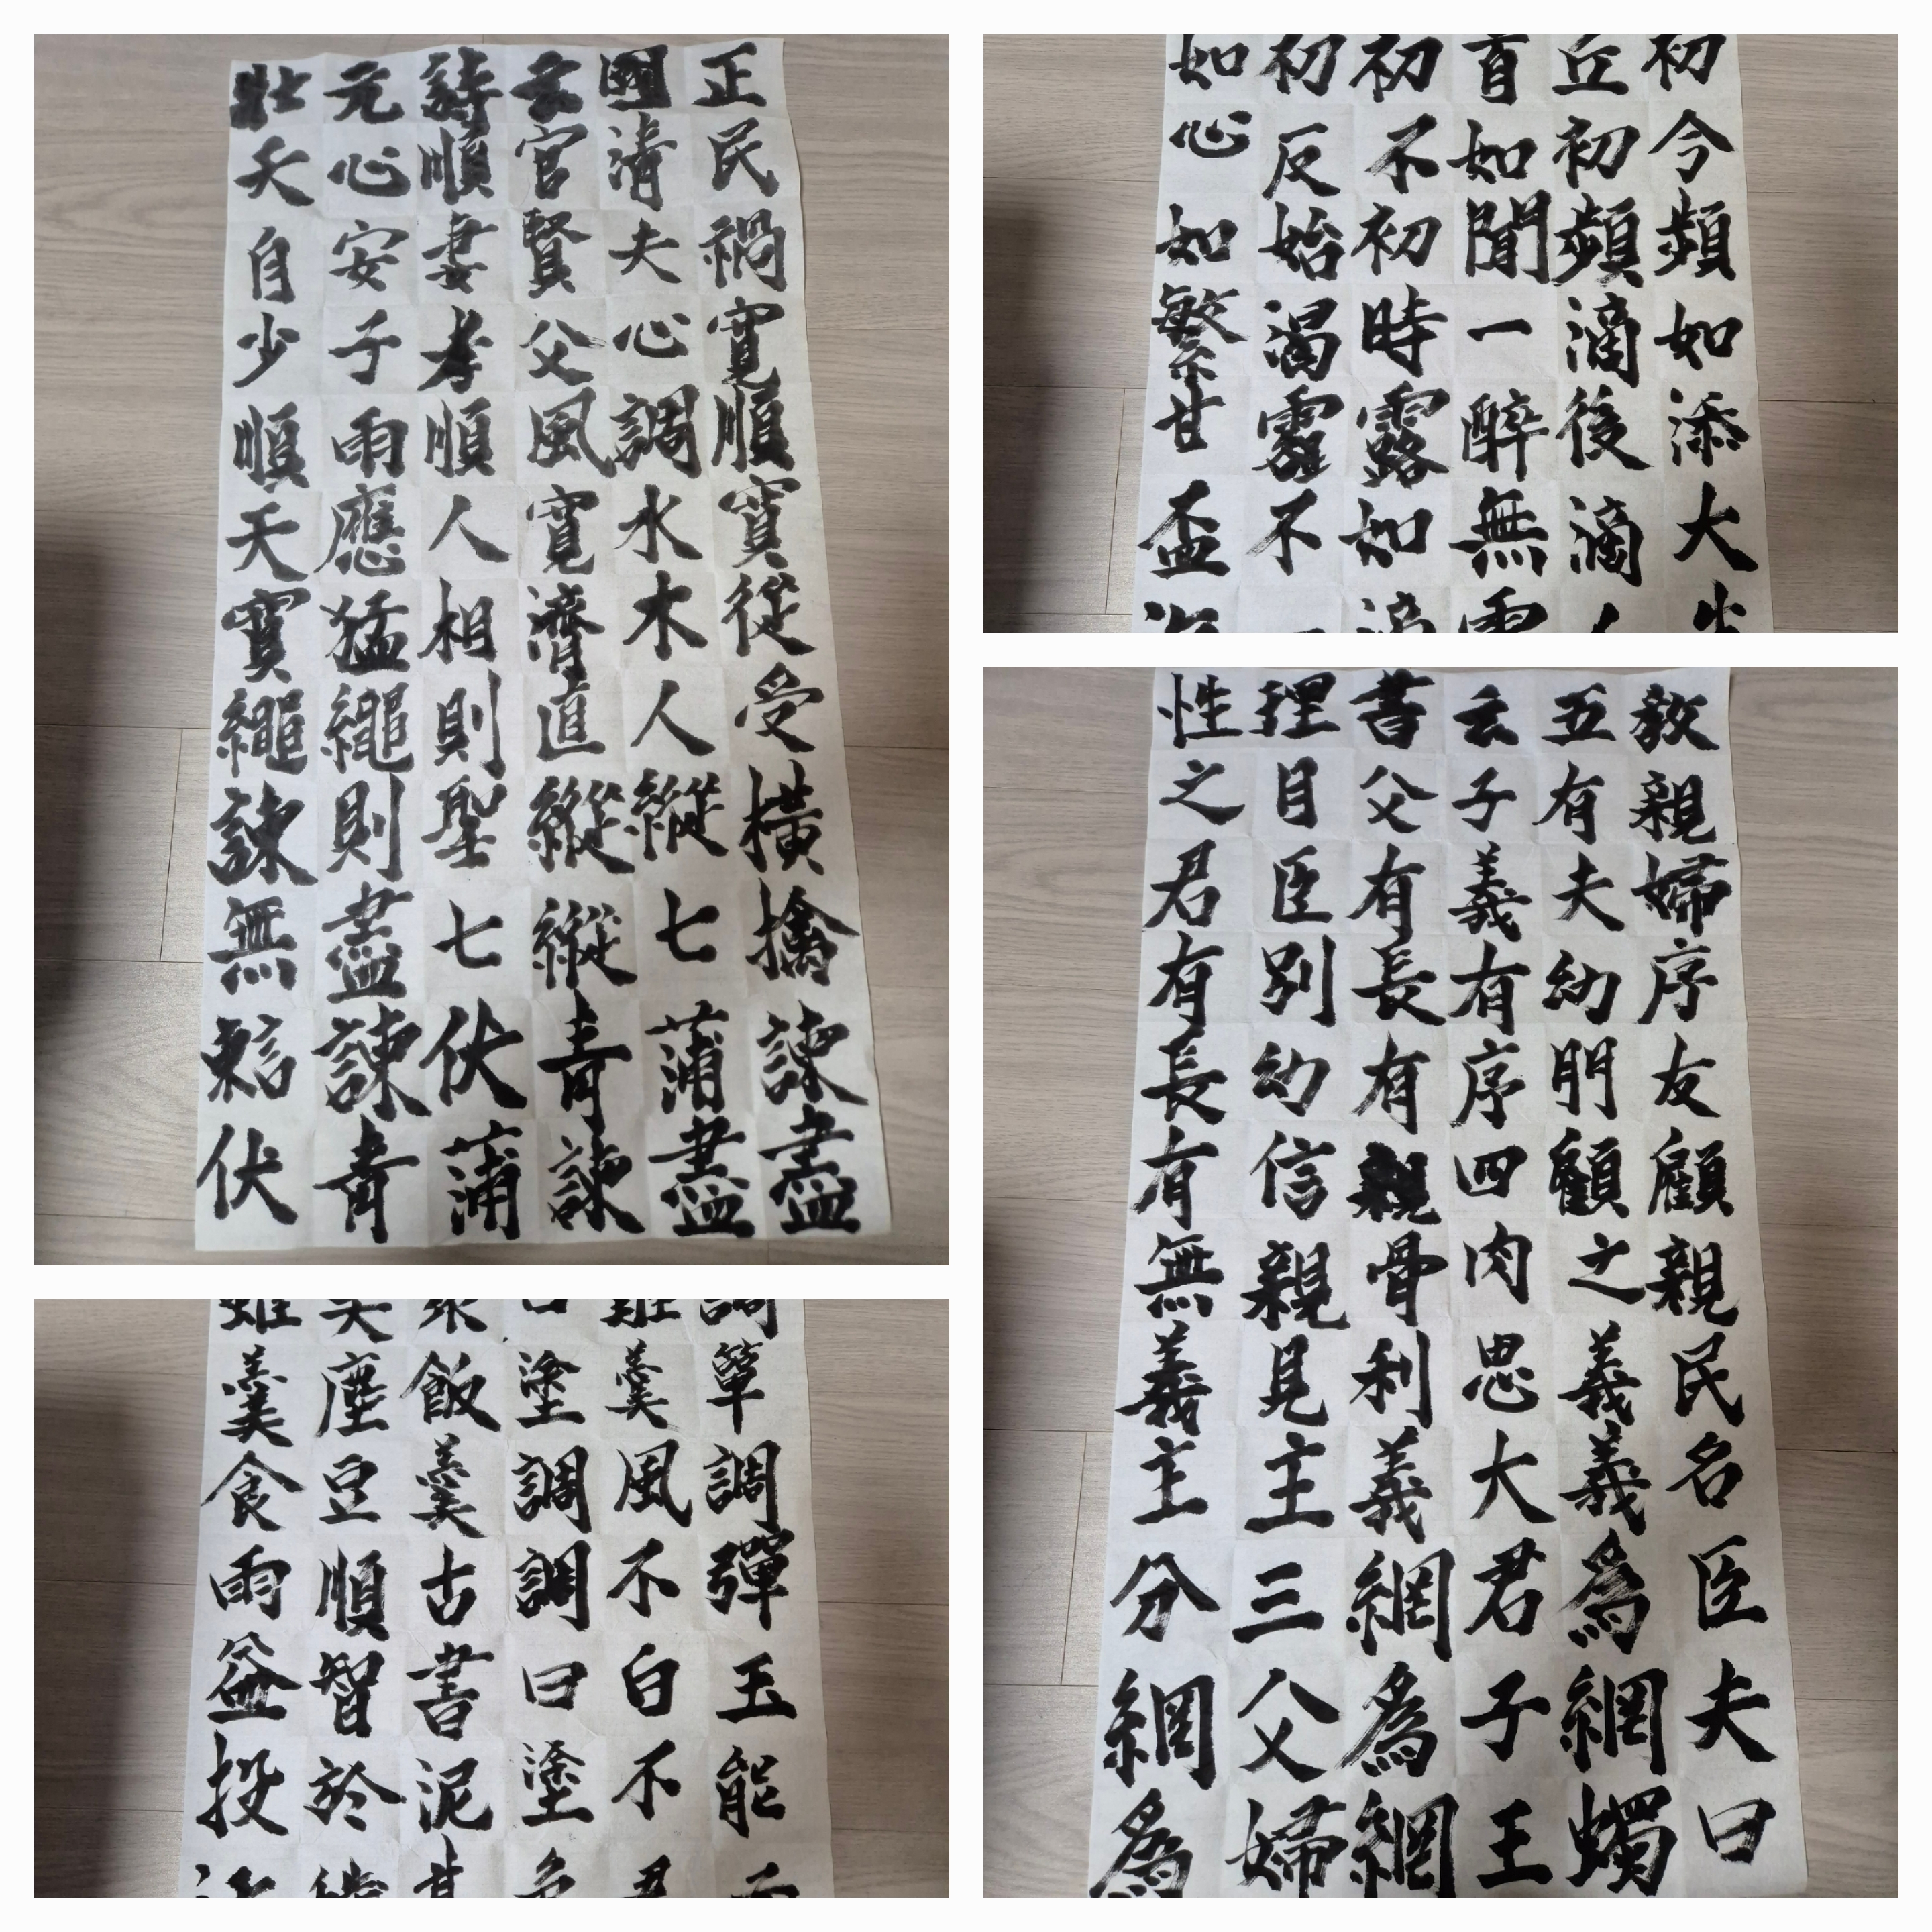 壯元詩云國正
天心順官清民
自安妻賢夫禍
少子孝父心寬
順雨順風調順
天應人寬水寶
寶猛相濟木從
繩繩則直人受
諫則聖縱縱橫
無盡七縱七擒
諫伏青蒲諫
伏青蒲諫盡盡
如初初盲丘初
心反不如初令
如始初聞頻頻
繁渴時一滴如
甘露露醉後添
盃不如無滴大
羹塵飯塗羹簞
食豆羹調風調
雨順古調不彈
益智書曰白玉
投於泥塗不能
性理書云五教
之目父子有親
君臣有義夫婦
有別長有幼序
長幼有序朋友
有信親四顧顧
無親骨肉之親
義見利思義民
主主義大義名
分三綱君爲臣
綱父爲子綱夫
爲婦綱王蠋曰